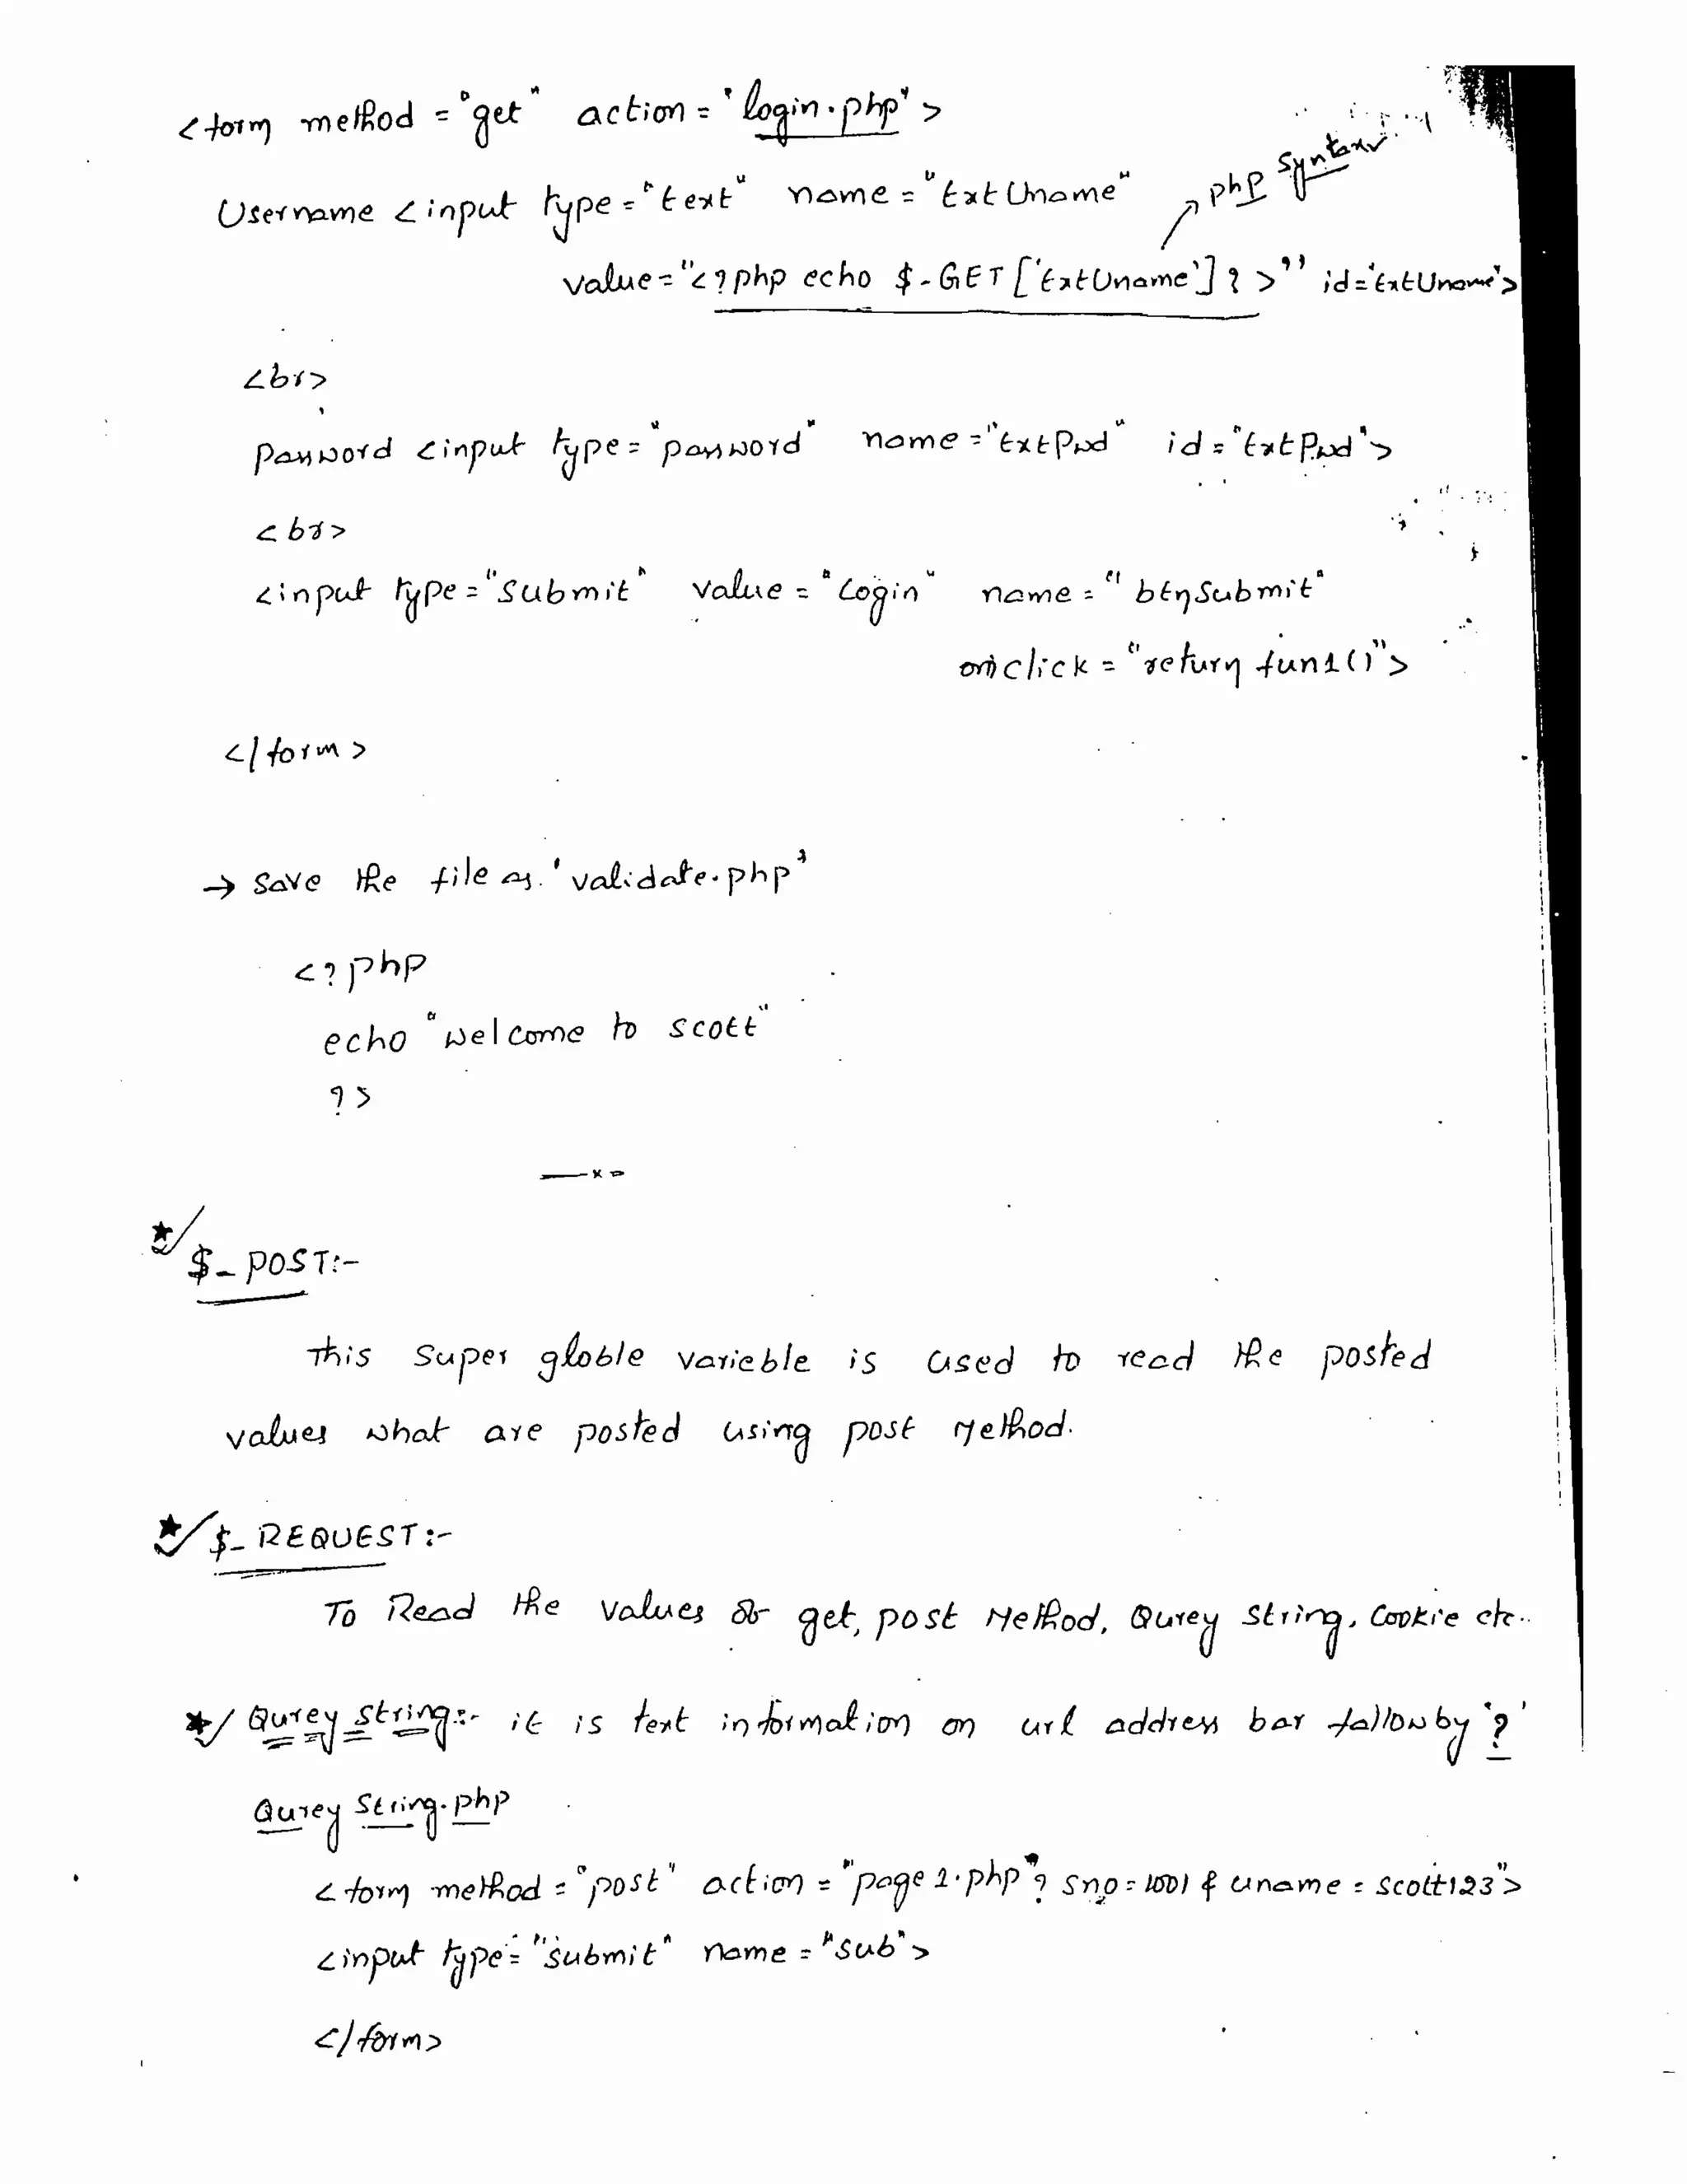 <form method = "get" action = 'login.php'>
php syntax
Username <input type = "text" name = "txtUname"
value = "<?php echo $_GET ['txtUname'] ?>" id = 'txtUname'>
<br>
Password <input type = "password" name = "txtPwd" id = "txtPwd">
<br>
<input type = "submit" value = "Login" name = "btnSubmit"
onclick = "return fun1()">
</form>
→ Save the file as 'validate.php'
<?php
echo "welcome to scott"
?>
—x—
$_POST:-
This super globle varieble is used to read the posted
values what are posted using post Method.
$_REQUEST:-
To Read the values of get, post Method, Qurey string, Cookie etc..
Qurey string:- it is text information on url address bar fallow by '?'
Qurey String.php
<form method = "post" action = "page1.php"? sno=1001 & uname = scott123">
<input type = "submit" name = "sub">
</form>